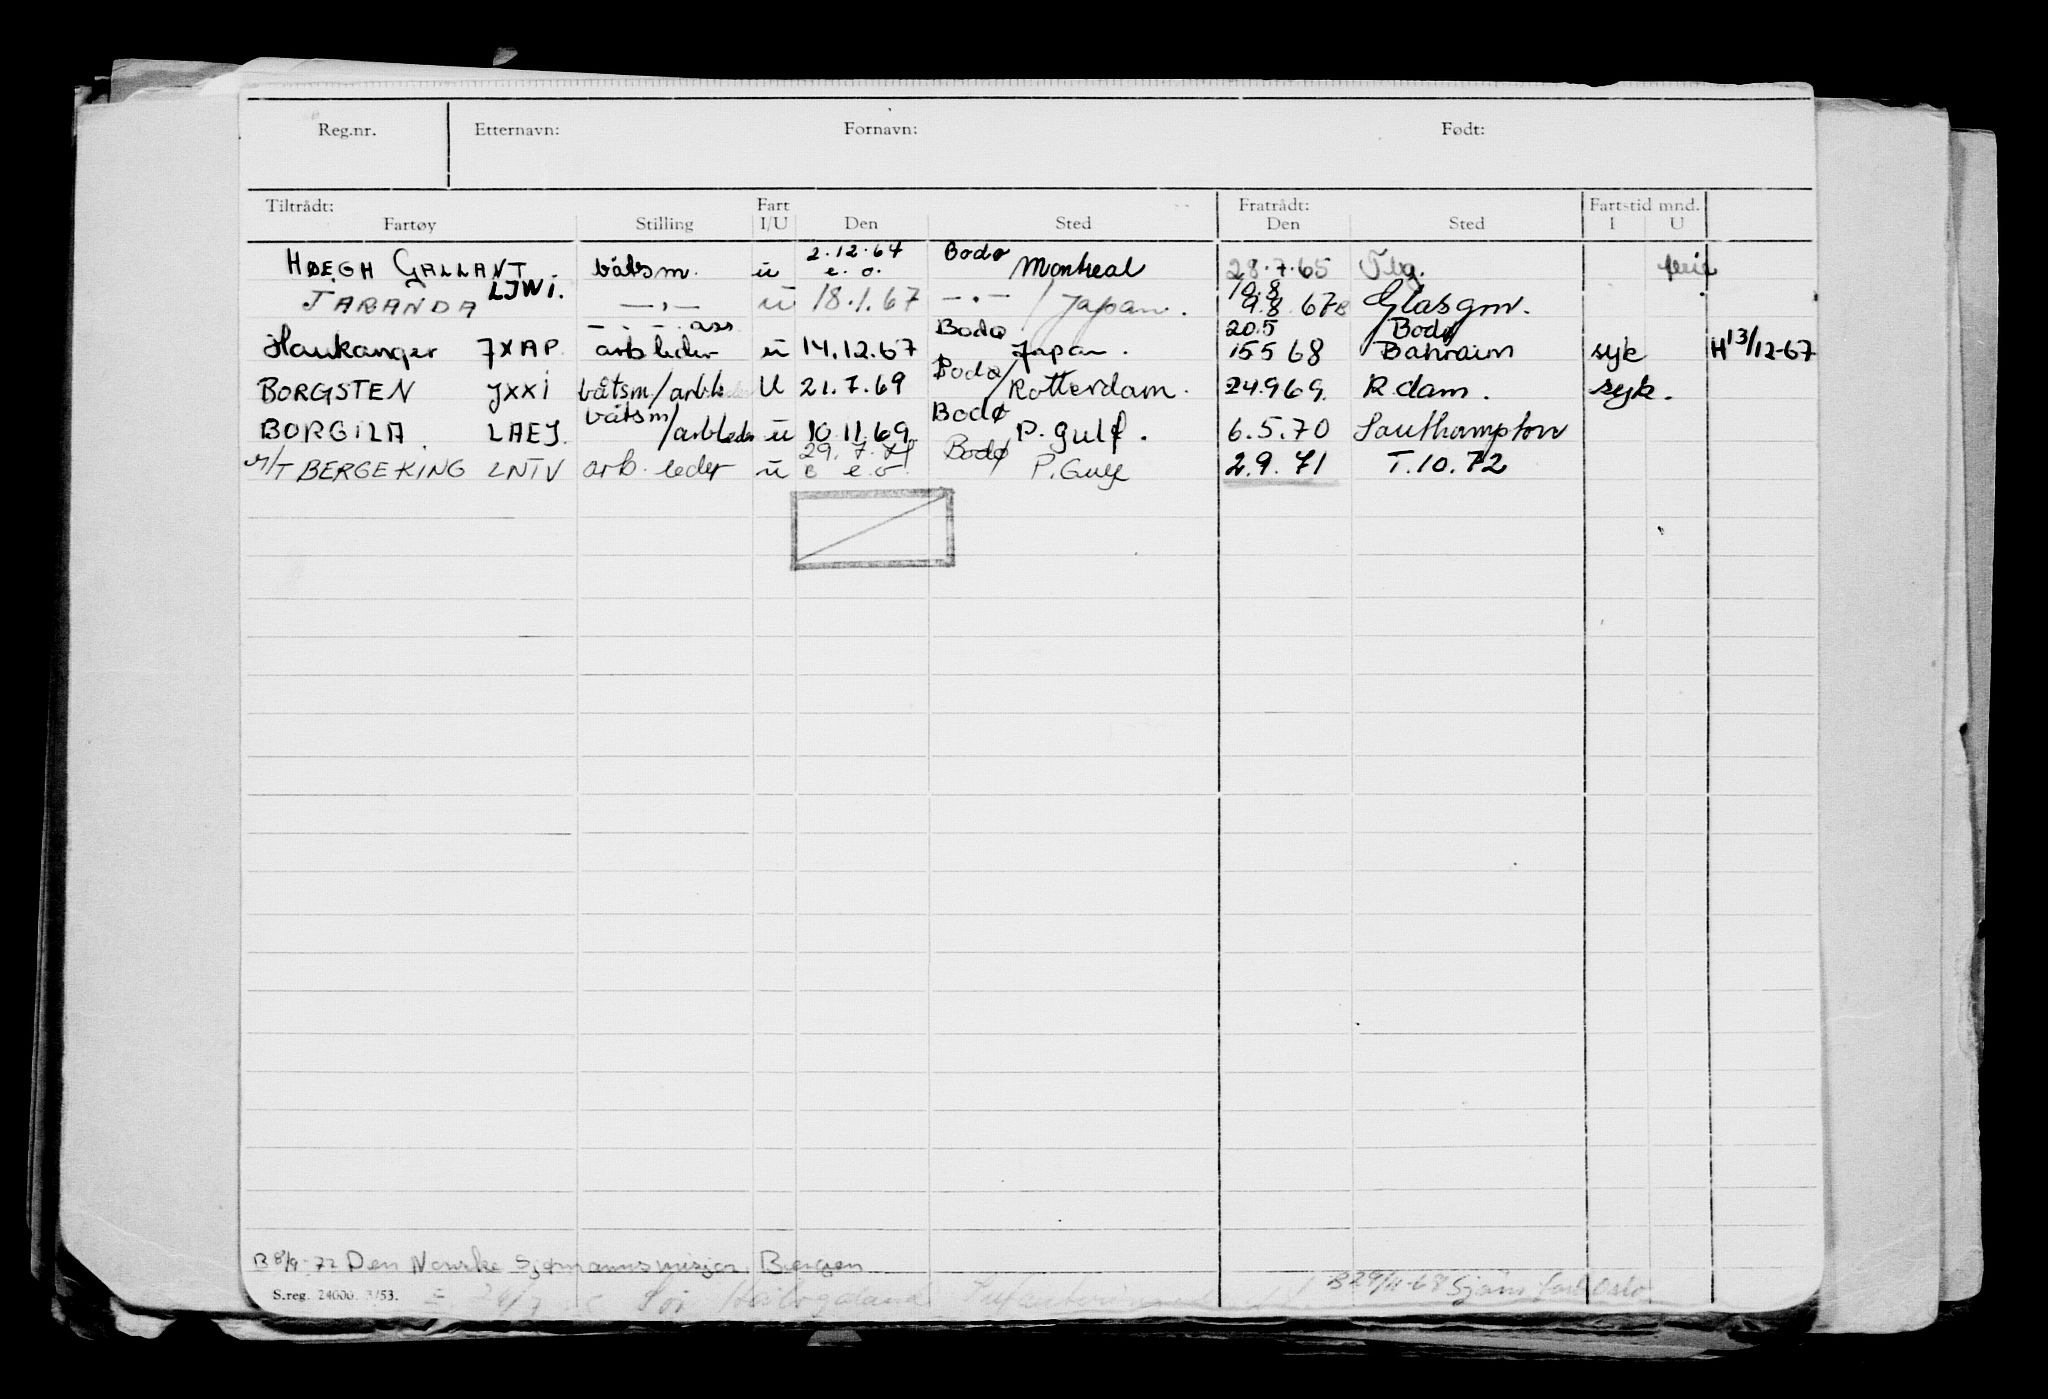 Reg.nr. Etternavn: Fornavn: Født:
Tiltrådt: Fart Fratrådt: Fartstid mnd.
Fartøy Stilling I/U Den Sted Den Sted I U
2.12.64 Bodø
HØEGH GALLANT båtsm. u e.o. Montreal 28.7.65 Tbg. ferie
LJWI. 10.8
JARANDA —,— u 18.1.67 —.— / Japan. 9.8 67 Glasgow.
—.—.ass Bodø 20.5 Bodø
Haukanger JXAP arb leder u 14.12.67 Japan. 15 5 68 Bahrain syk H 13/12-67
Bodø
BORGSTEN JXXI båtsm/arb.le U 21.7.69 / Rotterdam. 24.9 69. R.dam. syk.
båtsm Bodø
BORGILA. LAEJ. /arbleder u 10.11.69 P. gulf. 6.5.70 Southampton
29.7.71 Bodø
M/T BERGEKING LNTV arb. leder u e.o. P. Gulf 2.9.71 T.10.72
B 8/9-72 Den Norske Sjømannsmisjon Bergen
B 29/11-68 Sjøm Oslo
S.reg. 24000. 3/53.